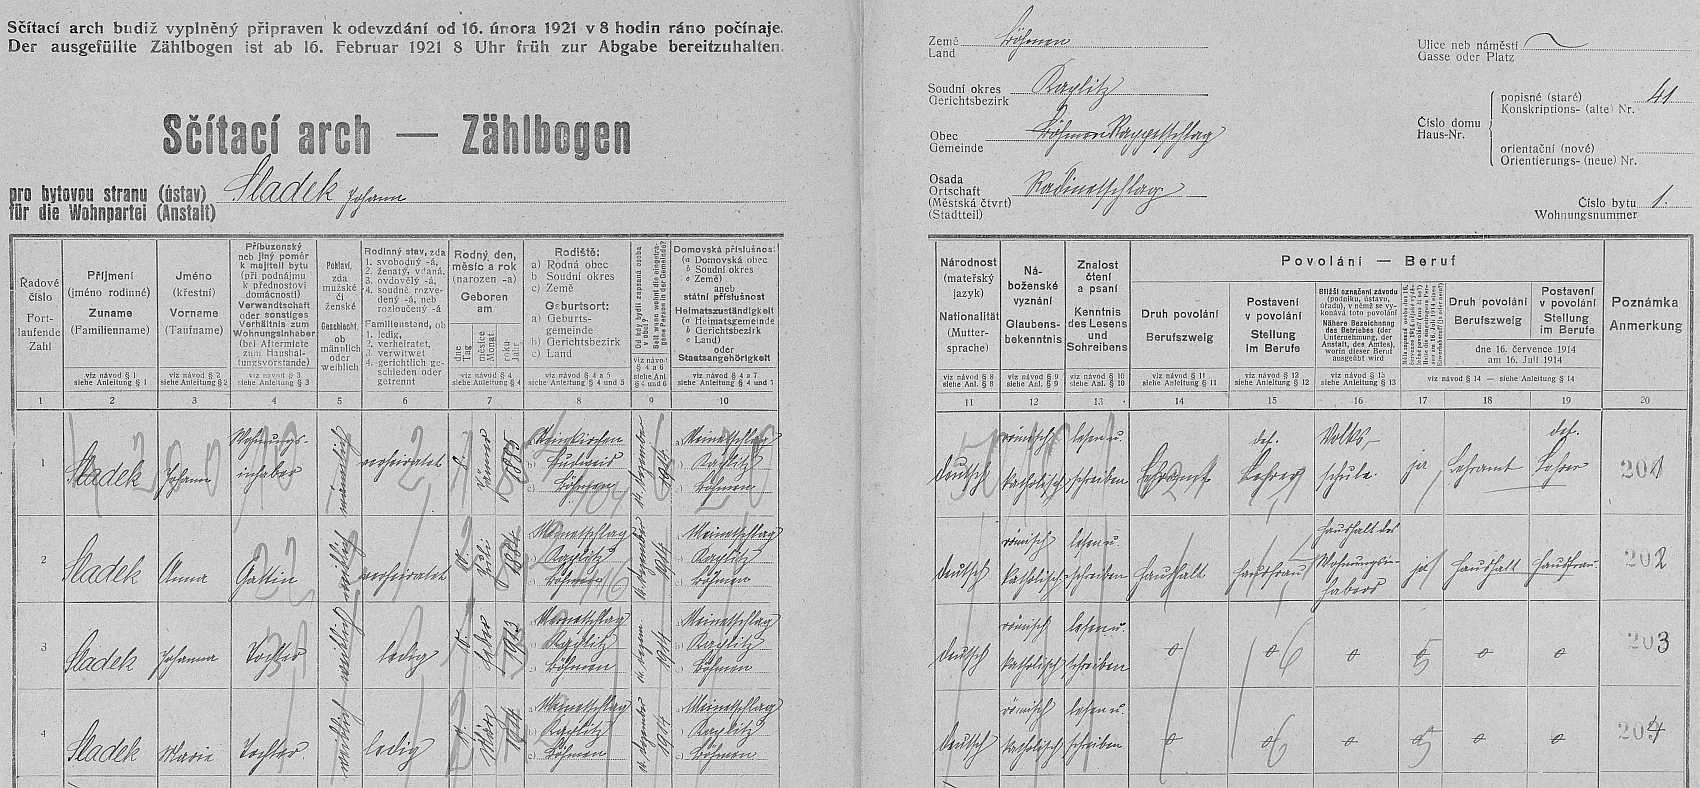 Sčítací arch budiž vyplněný připraven k odevzdání od 16. února 1921 v 8 hodin ráno počínaje.
Der ausgefüllte Zählbogen ist ab 16. Februar 1921 8 Uhr früh zur Abgabe bereitzuhalten.
Sčítací arch — Zählbogen
pro bytovou stranu (ústav)
für die Wohnpartei (Anstalt)
Sladek Johann
Řadové číslo
Fortlaufende Zahl
1
Příjmení
(jméno rodinné)
Zuname
(Familienname)
viz návod § 1
siehe Anleitung § 1
2
Jméno
(křestní)
Vorname
(Taufname)
viz návod § 2
siehe Anleitung § 2
3
Příbuzenský
neb jiný poměr
k majiteli bytu
(při podnájmu
k přednostovi
domácnosti)
Verwandschaft
oder sonstiges
Verhältnis zum
Wohnungsinhaber
(bei Aftermiete
zum Haushal-
tungsvorstande)
viz návod § 3
siehe Anleitung § 3
4
Pohlaví,
zda
mužské
či
ženské
Geschlecht,
ob
männlich
oder
weiblich
5
Rodinný stav, zda
1. svobodný -á,
2. ženatý, vdaná,
3. ovdovělý -á,
4. soudně rozve-
dený -á, neb
rozloučený -á
Familienstand, ob
1. ledig,
2. verheiratet,
3. verwitwet
4. gerichtlich ge-
schieden oder
getrennt
6
Rodný den,
měsíc a rok
(narozen -a)
Geboren
am
dne
Tag
měsíce
Monat
roku
Jahr
viz návod § 4
siehe Anleitung § 4
7
Rodiště:
a) Rodná obec
b) Soudní okres
c) Země
Geburtsort:
a) Geburts-
gemeinde
b) Gerichtsbezirk
c) Land
viz návod § 4 a 5
siehe Anleitung § 4 und 5
8
Od kdy bydlí zapsaná osoba
v obci?
Seit wann wohnt die eingetra-
gene Person in der Gemeinde?
viz návod
§ 4 a 6
siehe Anl.
§ 4 und 6
9
Domovská příslušnost
(a Domovská obec
b Soudní okres
c Země)
aneb
státní příslušnost
Heimatszuständigkeit
(a Heimatsgemeinde
b Gerichtsbezirk
c Land)
oder
Staatsangehörigkeit
viz návod § 4 a 7
siehe Anleitung § 4 und 7
10
1 Sladek Johann Wohnungs-inhaber männlich verheiratet Jänner 1885 Budweis Böhmen Dezember 1914 Meinetschlag Kaplitz Böhmen
2 Sladek Anna Gattin weiblich verheiratet Juli 1884 Meinetschlag Kaplitz Böhmen Dezember 1914 Meinetschlag Kaplitz Böhmen
3 Sladek Johanna Tochter weiblich ledig 1913 Meinetschlag Kaplitz Böhmen 1914 Meinetschlag Kaplitz Böhmen
4 Sladek Marie Tochter weiblich ledig März 1914 Meinetschlag Kaplitz Böhmen Dezember 1914 Meinetschlag Kaplitz Böhmen
Země
Land
Böhmen
Soudní okres
Gerichtsbezirk
Kaplitz
Obec
Gemeinde
Böhmen Rappetschlag
Osada
Ortschaft
(Městská čtvrť)
(Stadtteil)
Radinetschlag
Ulice neb náměstí
Gasse oder Platz
Číslo domu
Haus-Nr.
popisné (staré)
Konskriptions- (alte) Nr.
41
orientační (nové)
Orientierungs- (neue) Nr.
Číslo bytu
Wohnungsnummer
1.
Národnost
(mateřský
jazyk)
Nationalität
(Mutter-
sprache)
viz návod § 8
siehe Anl. § 8
11
Ná-
boženské
vyznání
Glaubens-
bekenntnis
viz návod § 9
siehe Anl. § 9
12
Znalost
čtení
a psaní
Kenntnis
des Lesens
und
Schreibens
viz návod § 10
siehe Anl. § 10
13
Povolání — Beruf
Druh povolání
Berufszweig
viz návod § 11
siehe Anleitung § 11
14
Postavení
v povolání
Stellung
im Berufe
viz návod § 12
siehe Anleitung § 12
15
Bližší označení závodu
(podniku, ústavu,
úřadu), v němž se vy-
konává toto povolání
Nähere Bezeichnung
des Betriebes (der
Unternehmung, der
Anstalt, des Amtes),
worin dieser Beruf
ausgeübt wird
viz návod § 13
siehe Anleitung § 13
16
17
Druh povolání
Berufszweig
Postavení
v povolání
Stellung
im Berufe
dne 16. července 1914
am 16. Juli 1914
viz návod § 14 — siehe Anleitung § 14
18
19
Poznámka
Anmerkung
20
deutsch römisch katholisch lesen u. schreiben Lehramt def. Lehrer Volks-schule ja Lehramt def. Lehrer 201
deutsch römisch katholisch lesen u. schreiben Haushalt Hausfrau Haushalt des Wohnungsin-habers ja Haushalt Hausfrau 202
deutsch römisch katholisch lesen u. schreiben 203
deutsch römisch katholisch lesen u. schreiben 204